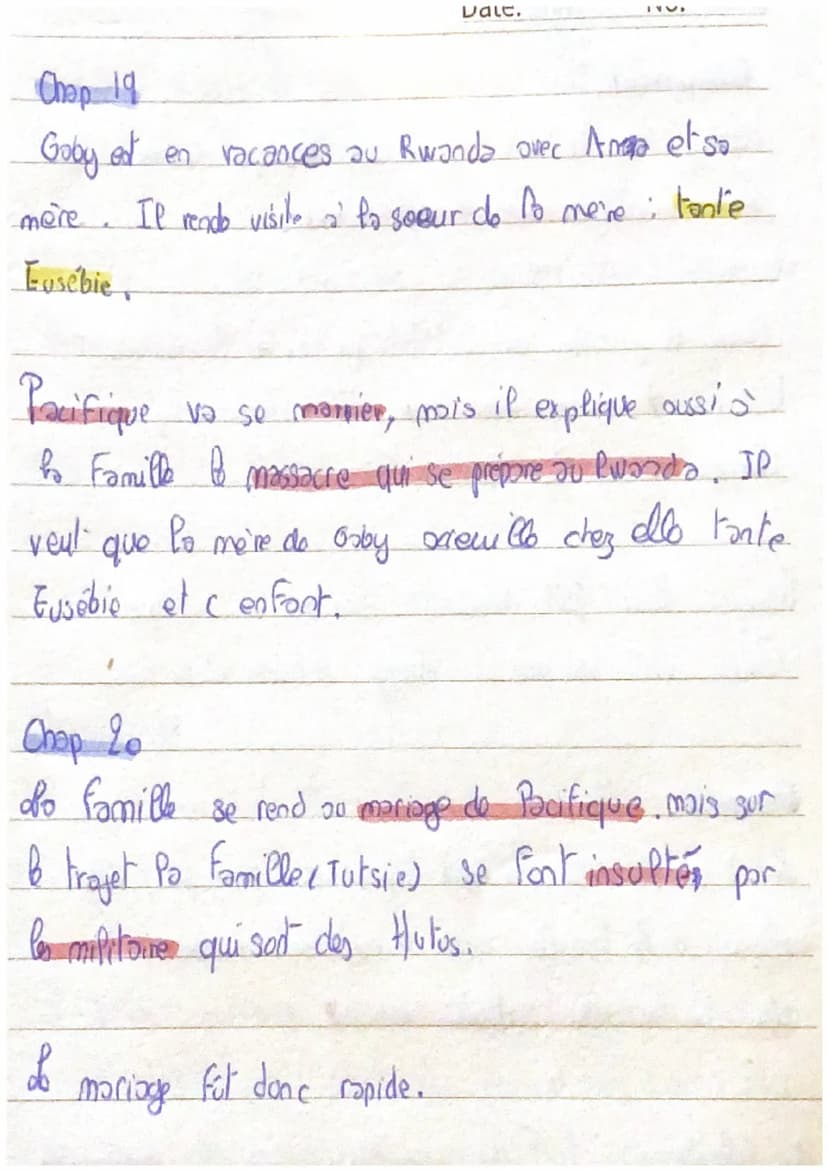 Date. No.
Chap 19
Gaby est en vacances au Rwanda avec Anna et sa
mère. Il rends visite à la soeur de la mère : tante
Eusébie.
Pacifique va se marrier, mais il explique aussi à
la famille le massacre qui se prépare au Rwanda. Il
veut que la mère de Gaby accueille chez elle tante
Eusébie et c enfant.
Chap 20
La famille se rend au mariage de Pacifique. mais sur
le trajet la famille (Tutsie) se font insultés par
les militaire qui sont des Hutus.
Le mariage fût donc rapide.